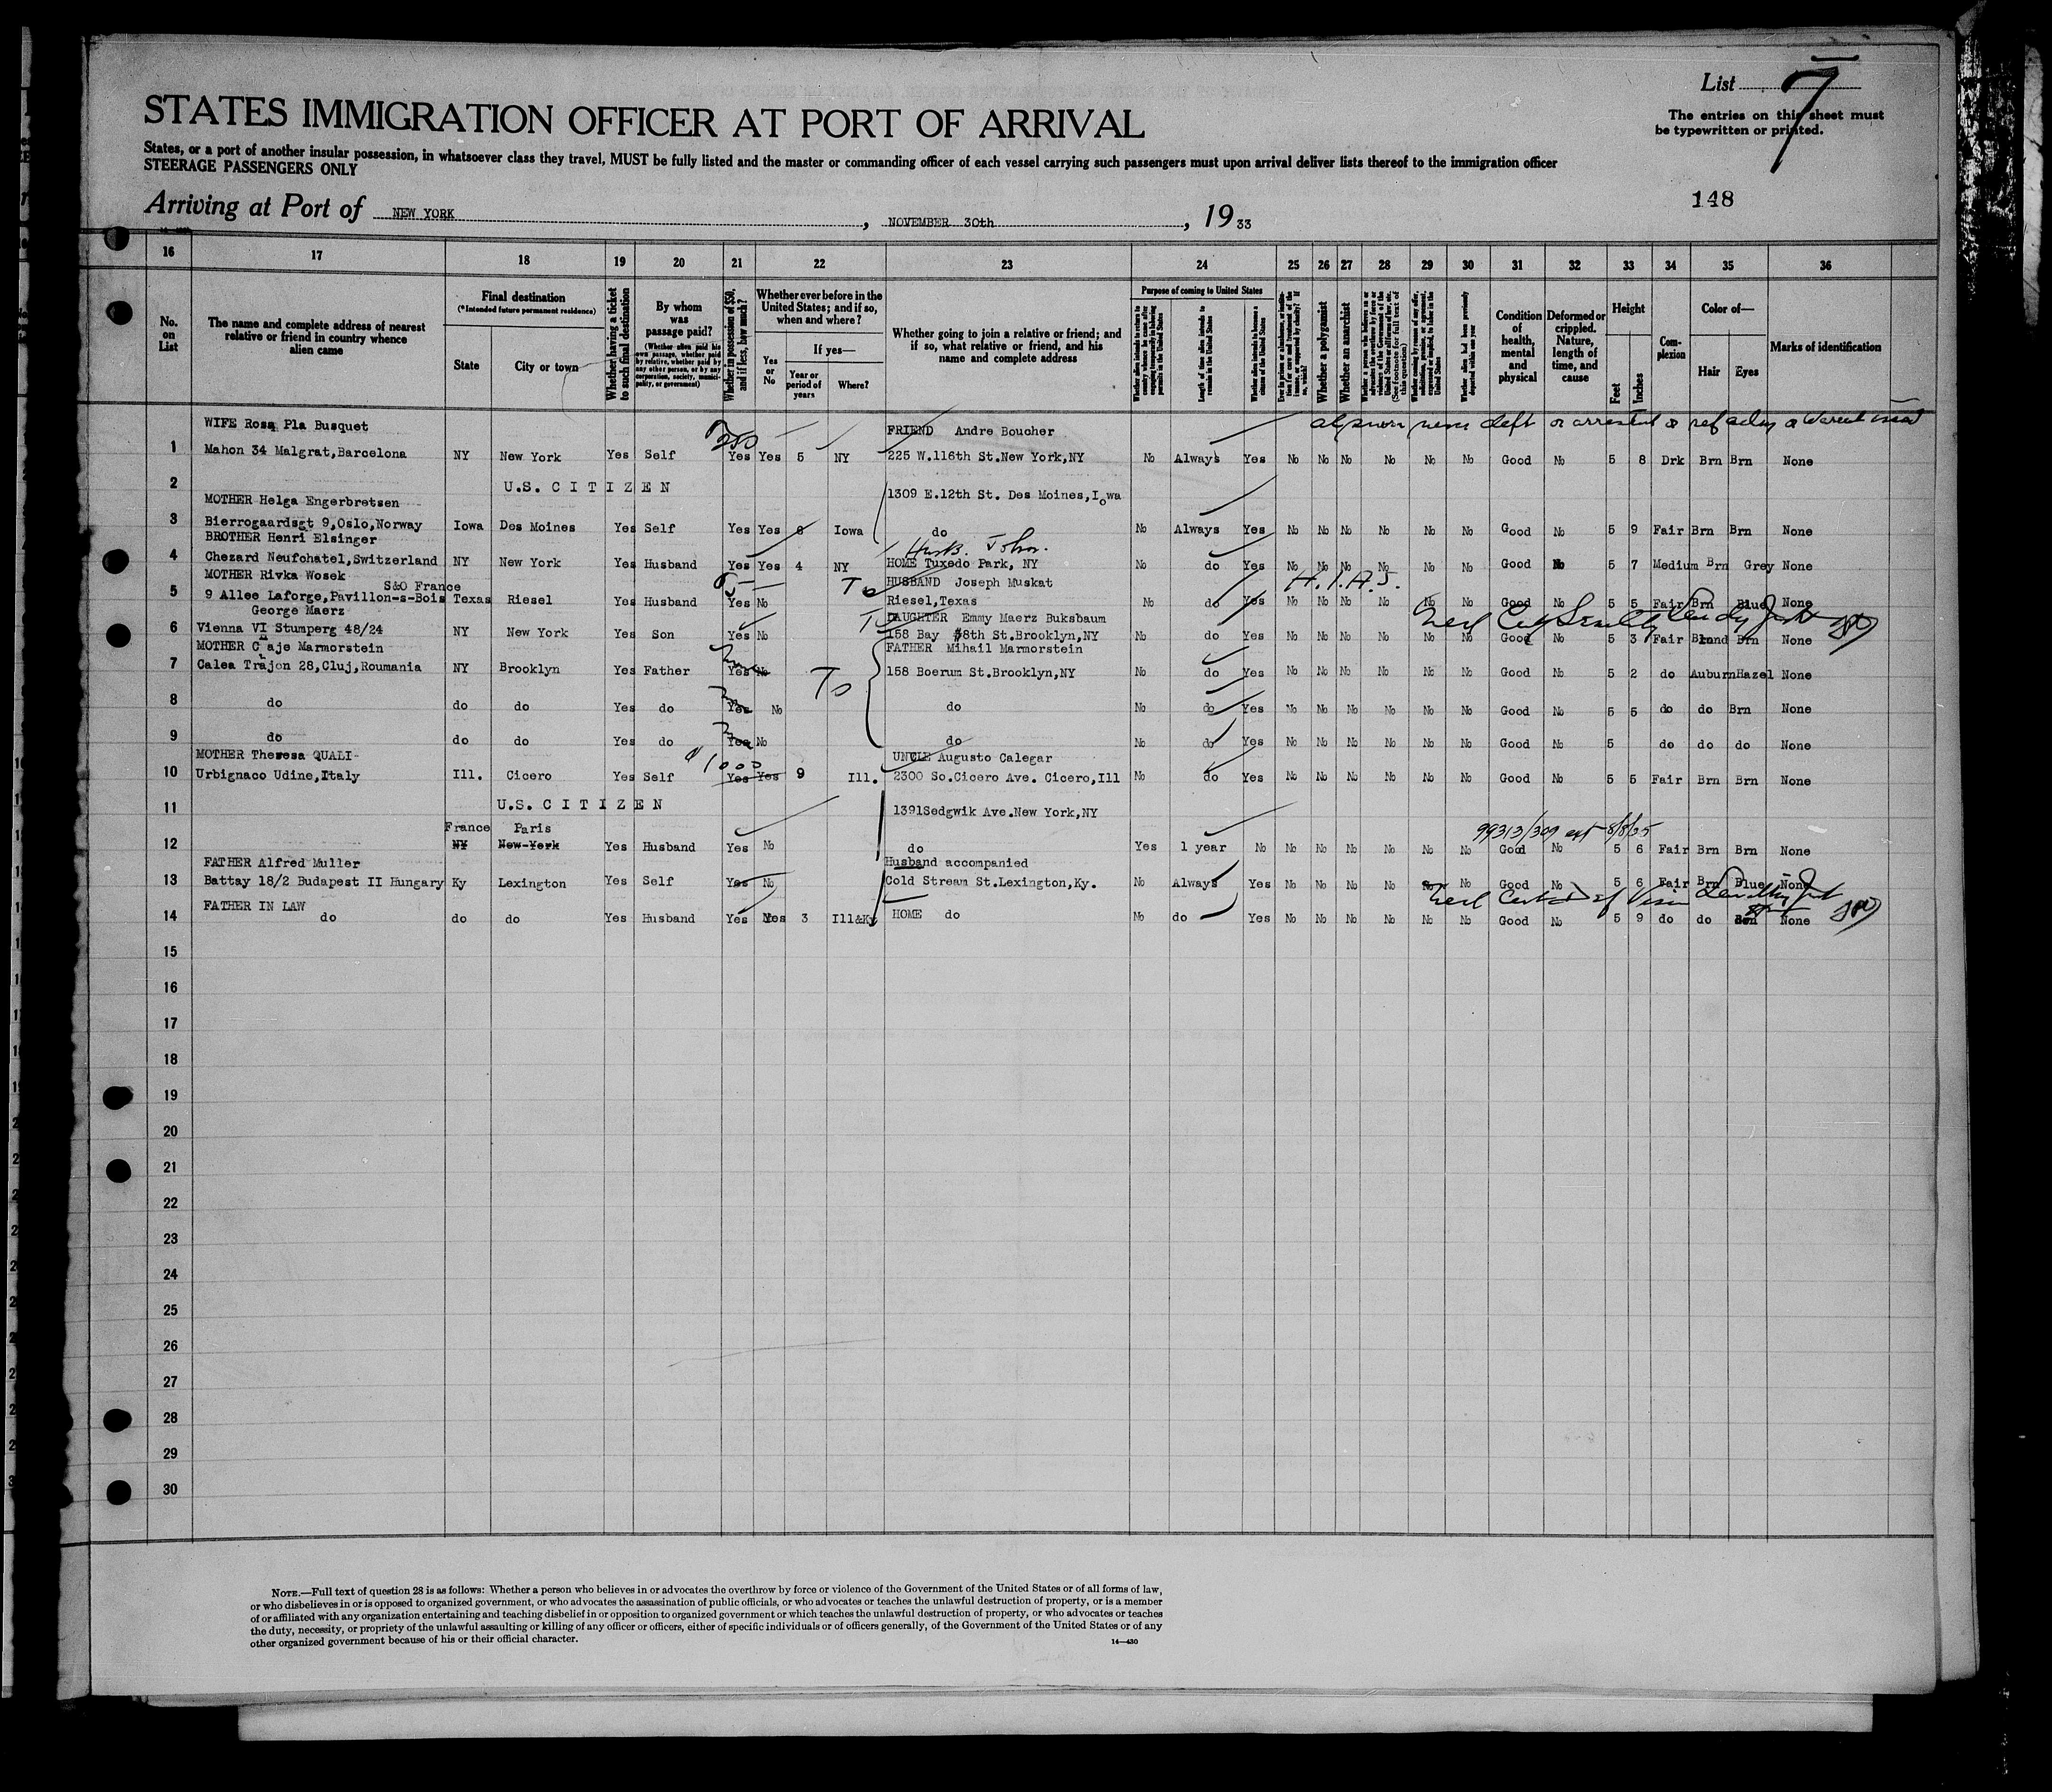 List 7
STATES IMMIGRATION OFFICER AT PORT OF ARRIVAL
The entries on this sheet must
be typewritten or printed.
States, or a port of another insular possession, in whatsoever class they travel, MUST be fully listed and the master or commanding officer of each vessel carrying such passengers must upon arrival deliver lists thereof to the immigration officer
STEERAGE PASSENGERS ONLY
148
Arriving at Port of NEW YORK, NOVEMBER 30th, 19 33
16 17 18 19 20 21 22 23 24 25 26 27 28 29 30 31 32 33 34 35 36
No. on List
The name and complete address of nearest relative or friend in country whence alien came
Final destination
(*Intended future permanent residence)
State
City or town
Whether having a ticket to such final destination
By whom was passage paid?
(Whether alien paid his own passage, whether paid by relative, whether paid by any other person, or by any corporation, society, municipality, or government)
Whether in possession of $50, and if less, how much?
Whether ever before in the United States; and if so, when and where?
Yes or No
If yes—
Year or period of years
Where?
Whether going to join a relative or friend; and if so, what relative or friend, and his name and complete address
Purpose of coming to United States
Length of time alien intends to remain in the United States
Whether alien intends to become a citizen of the United States
Whether a polygamist
Whether an anarchist
Condition of health, mental and physical
Deformed or crippled. Nature, length of time, and cause
Height
Feet
Inches
Complexion
Color of—
Hair
Eyes
Marks of identification
WIFE Rosa Pla Busquet FRIEND Andre Boucher
1 Mahon 34 Malgrat,Barcelona NY New York Yes Self Yes Yes 5 NY 225 W.116th St.New York,NY No Always Yes No No No No No No Good No 5 8 Drk Brn Brn None
2 U.S. C I T I Z E N 1309 E.12th St. Des Moines,Iowa
MOTHER Helga Engerbretsen
3 Bierrogaardsgt 9,Oslo,Norway Iowa Des Moines Yes Self Yes Yes 8 Iowa do No Always Yes No No No No No No Good No 5 9 Fair Brn Brn None
BROTHER Henri Elsinger Husb. John.
4 Chezard Neufchatel,Switzerland NY New York Yes Husband Yes Yes 4 NY HOME Tuxedo Park, NY No do Yes No No No No No No Good No 5 7 Medium Brn Grey None
MOTHER Rivka Wosek HUSBAND Joseph Muskat H.I.A.S.
S&O France
5 9 Allee Laforge,Pavillon-s-Bois Texas Riesel Yes Husband Yes No Riesel,Texas No do Yes No No No No No No Good No 5 5 Fair Brn Blue None
George Maerz DAUGHTER Emmy Maerz Buksbaum
6 Vienna VI Stumperg 48/24 NY New York Yes Son Yes No 158 Bay 38th St.Brooklyn,NY No do Yes No No No No No No Good No 5 3 Fair Blond Brn None
MOTHER Chaje Marmorstein FATHER Mihail Marmorstein
7 Calea Trajon 28,Cluj,Roumania NY Brooklyn Yes Father Yes No 158 Boerum St.Brooklyn,NY No do Yes No No No No No No Good No 5 2 do Auburn Hazel None
8 do do do Yes do Yes No do No do Yes No No No No No No Good No 5 5 do do Brn None
9 do do do Yes do Yes No do No do Yes No No No No No No Good No 5 do do do None
MOTHER Theresa QUALI- $1000 UNCLE Augusto Calegar
10 Urbignaco Udine,Italy Ill. Cicero Yes Self Yes Yes 9 Ill. 2300 So.Cicero Ave. Cicero,Ill No do Yes No No No No No No Good No 5 5 Fair Brn Brn None
11 U.S. C I T I Z E N 1391Sedgwik Ave.New York,NY
France Paris 99313/309 ext 8/8/35
12 NY New-York Yes Husband Yes No do Yes 1 year No No No No No No No Good No 5 6 Fair Brn Brn None
FATHER Alfred Muller Husband accompanied
13 Battay 18/2 Budapest II Hungary Ky Lexington Yes Self Yes No Cold Stream St.Lexington,Ky. No Always Yes No No No No No No Good No 5 6 Fair Brn Blue None
FATHER IN LAW
14 do do do Yes Husband Yes Yes 3 Ill&Ky HOME do No do Yes No No No No No No Good No 5 9 do do None
15
16
17
18
19
20
21
22
23
24
25
26
27
28
29
30
NOTE.—Full text of question 28 is as follows: Whether a person who believes in or advocates the overthrow by force or violence of the Government of the United States or of all forms of law,
or who disbelieves in or is opposed to organized government, or who advocates the assassination of public officials, or who advocates or teaches the unlawful destruction of property, or is a member
of or affiliated with any organization entertaining and teaching disbelief in or opposition to organized government or which teaches the unlawful destruction of property, or who advocates or teaches
the duty, necessity, or propriety of the unlawful assaulting or killing of any officer or officers, either of specific individuals or of officers generally, of the Government of the United States or of any
other organized government because of his or their official character.
14—430